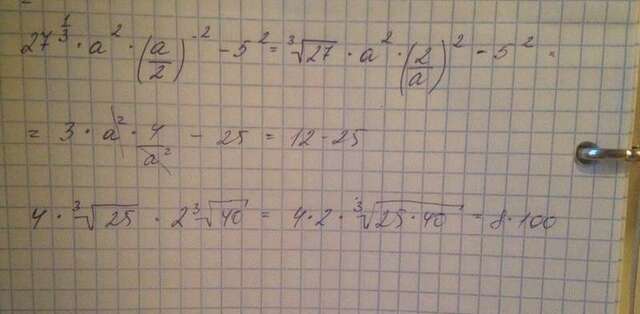 27^{\frac{1}{3}} · a^2 · (\frac{a}{2})^{-2} - 5^2 = \sqrt[3]{27} · a^2 · (\frac{2}{a})^2 - 5^2 =
= 3 · a^2 · \frac{4}{a^2} - 25 = 12 - 25
4 · \sqrt[3]{25} · 2\sqrt[3]{40} = 4 · 2 · \sqrt[3]{25 · 40} = 8 · 100